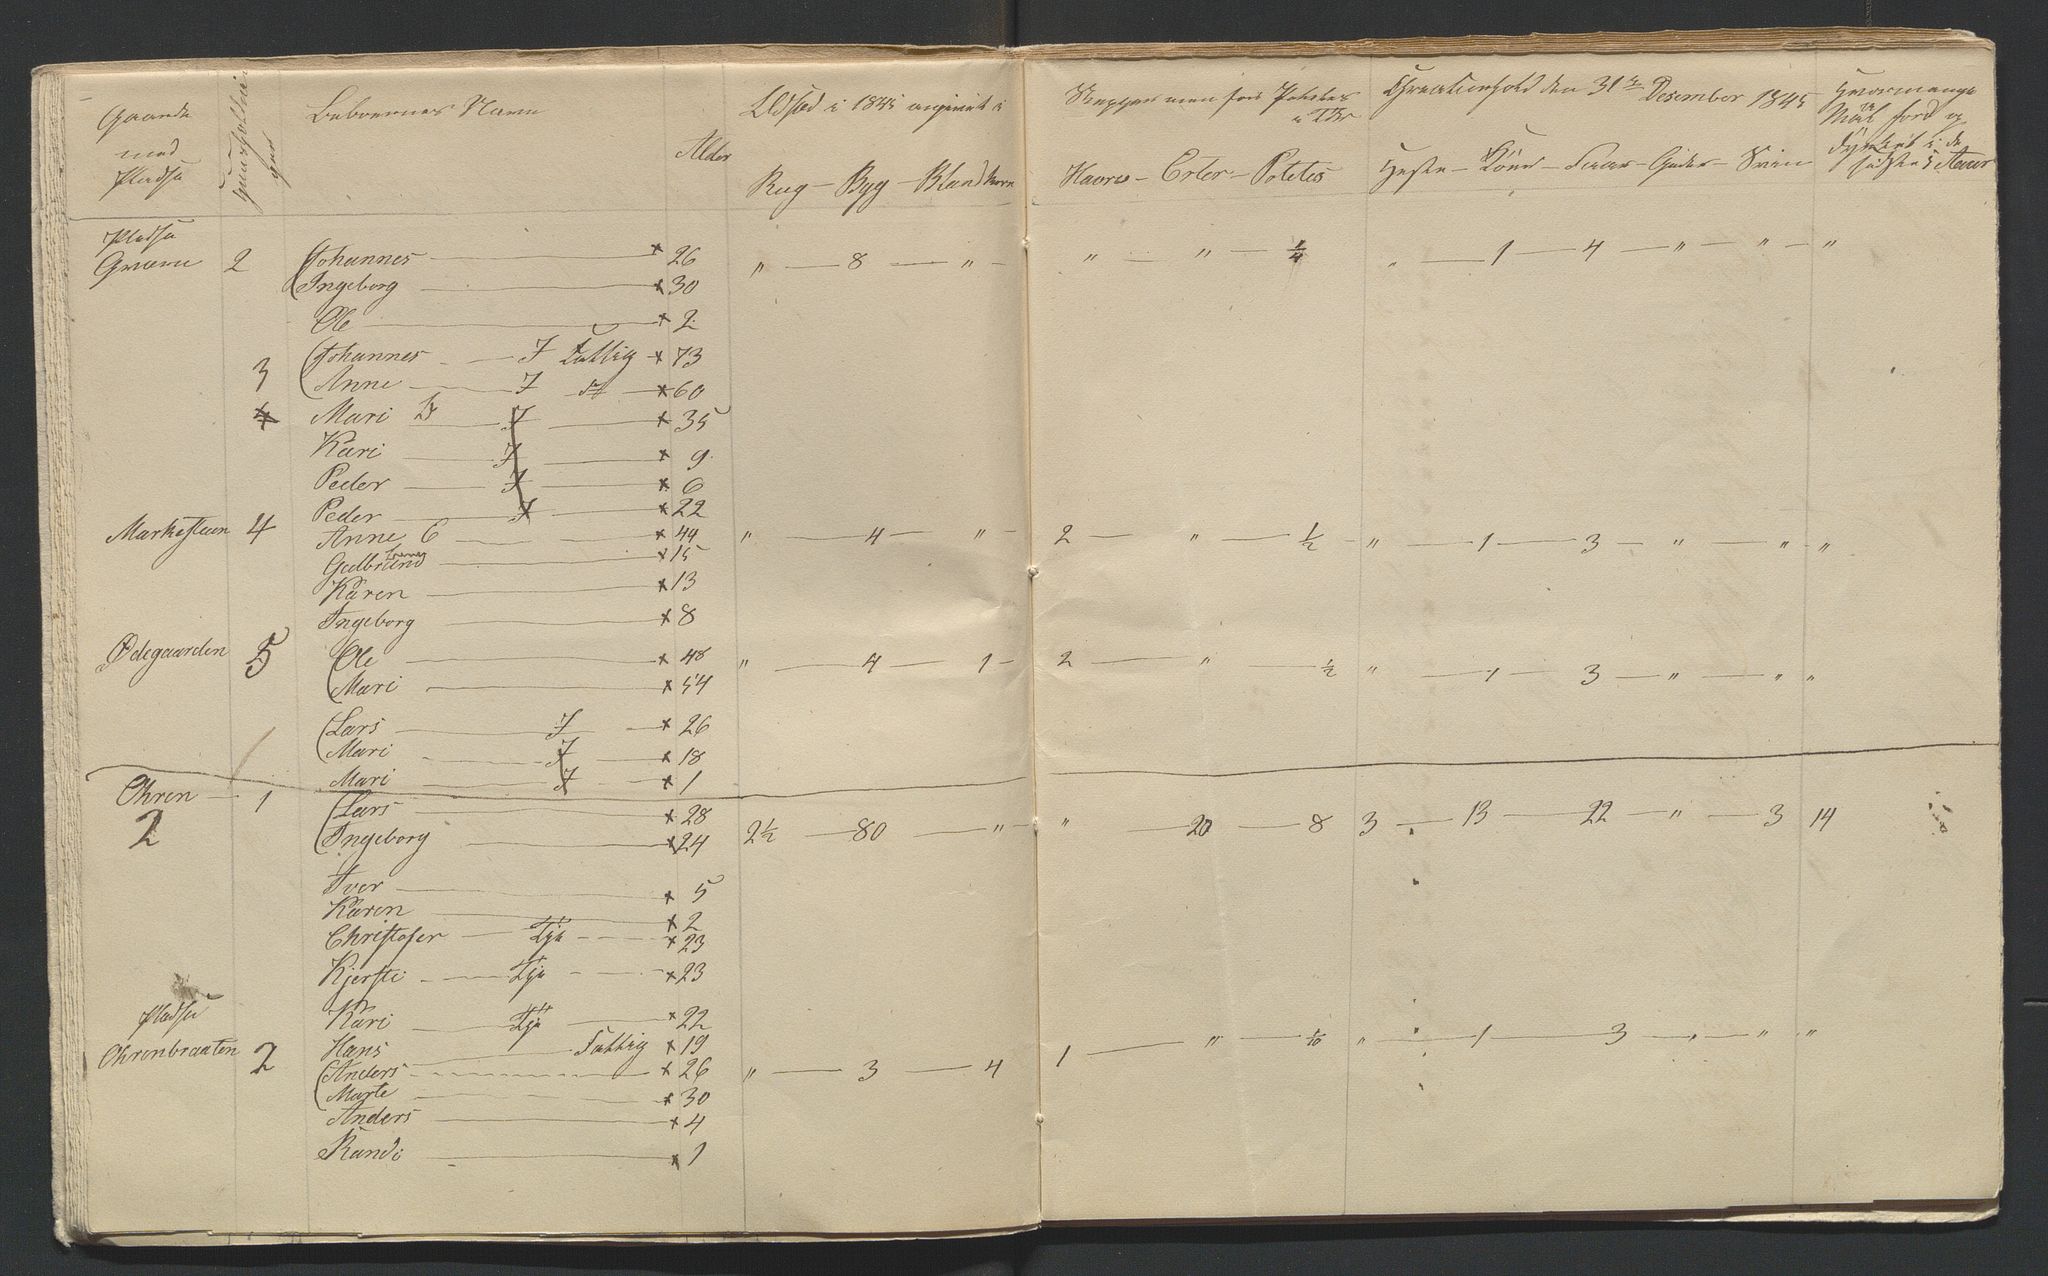 Gaarde med Pladse Huusholdninger Beboernes Navne Alder Udsæd i 1845 angivet i Rug - Byg - Blandkorn
Havre - Erter - Potetes Creaturhold den 31te Desember 1845 Heste - Köer - Faar - Geder - Svin
Pladse
Græene 2 Johannes × 26 " 8 " " " 1/4 " 1 4 " " "
Ingeborg × 30
Ole × 2
Johannes J Fattig × 73
3 Anne J × 60
4 Mari J × 35
Kari J × 9
Peder J × 6
Peder J × 22
Markesteen 4 Anne E × 44 " 4 " 2 " 1/2 " 1 3 " " "
Gulbrand × 15
Karen × 13
Ingeborg × 8
Ødegaarden 5 Ole × 48 " 4 1 2 " 1/2 " 1 3 " " "
Mari × 54
Lars J × 26
Mari J × 18
Mari J × 1
Ohren 1 Lars × 28
2 Ingeborg × 24 2 1/2 80 " " 20 8 3 13 22 " 3 14
Iver × 5
Karen × 2
Christofer Tje × 23
Kjersti Tje × 23
Kari Tje × 22
Pladse
Hans Fattig × 19
Ohrenbraaten 2 Anders × 26 " 3 4 1 " 1/10 " 1 3 " " "
Marte × 30
Anders × 4
Randi × 1